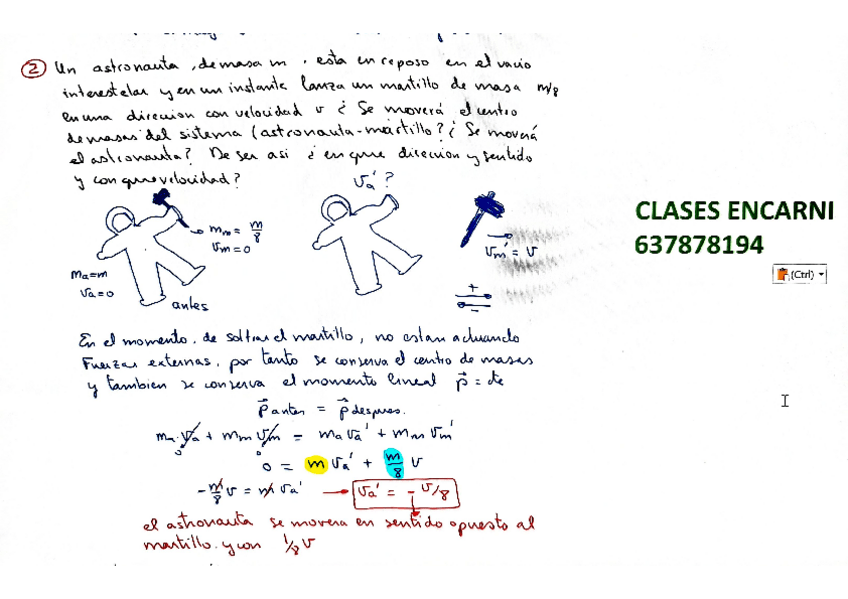 ② Un astronauta, de masa m, esta en reposo en el vacio
interestelar y en un instante lanza un martillo de masa m/8
en una direcion con velocidad v ¿ Se moverá el centro
de masas del sistema (astronauta-martillo? ¿ Se moverá
el astronauta? De ser asi ¿ en que direcion y sentido
y con que velocidad?
va'?
mm = m/8
vm = 0
ma = m
va = 0
antes
vm' = v
+
-
CLASES ENCARNI
637878194
(Ctrl)
En el momento, de soltar el martillo, no estan actuando
Fuerzas externas, por tanto se conserva el centro de masas
y tambien se conserva el momento lineal p⃗ = cte
p⃗ antes = p⃗ despues.
ma·va + mm vm = ma va' + mm vm'
0 0
0 = m va' + m/8 v
-m/8 v = m va' → va' = - v/8
el astronauta se movera en sentido opuesto al
martillo. y con 1/8 v